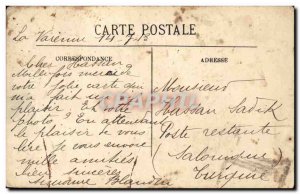 CARTE POSTALE
La Varenne 14-9-13
CORRESPONDANCE
ADRESSE
Cher Hassan
mille fois merci de
votre jolie carte qui
m'a fait
plaisir. Et votre
photo ? En attendant
le plaisir de vous
lire je vous envoie
mille amitiés
bien sincères
Simonne
Monsieur
Hassan Sadik
Poste restante
Salonique
Turquie